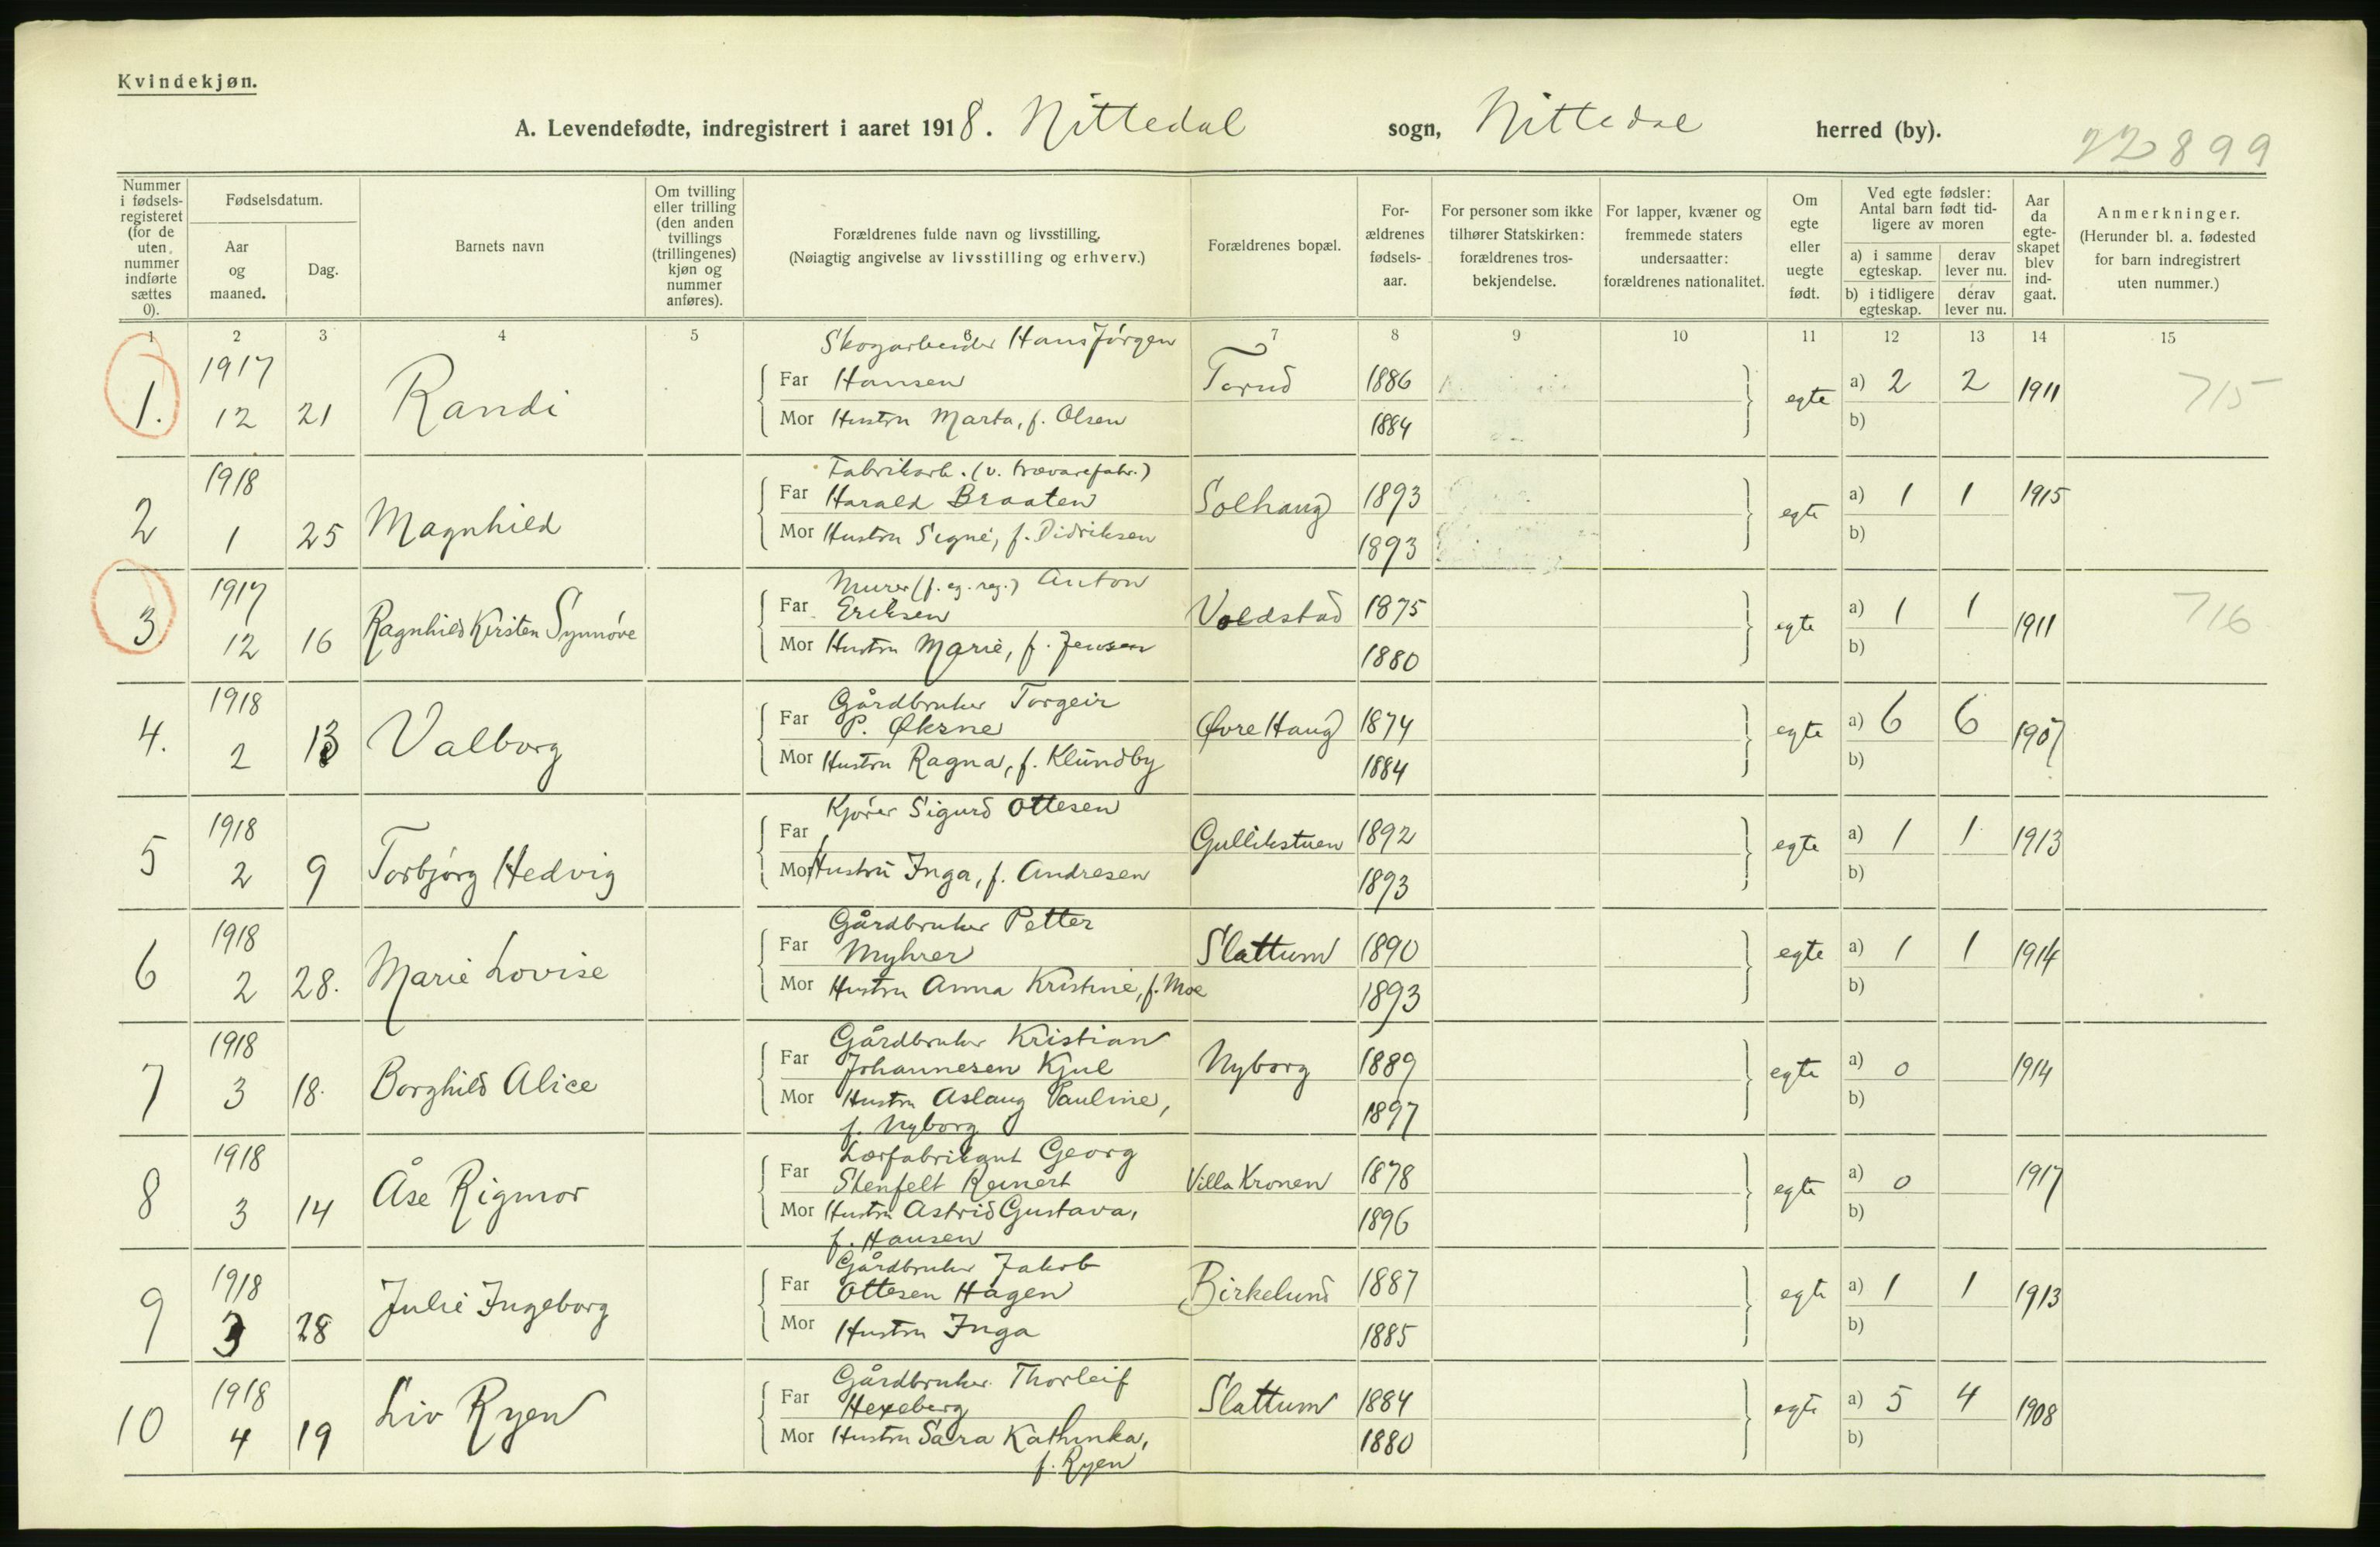 Kvindekjøn.
A. Levendefødte, indregistrert i aaret 1918. Nittedal sogn, Nittedal herred (by).
22899
Nummer i fødsels-registeret (for de uten nummer indførte sættes 0).
Fødselsdatum.
Aar og maaned.
Dag.
Barnets navn
Om tvilling eller trilling (den anden tvillings (trillingenes) kjøn og nummer anføres).
Forældrenes fulde navn og livsstilling,
(Nøiagtig angivelse av livsstilling og erhverv.)
Forældrenes bopæl.
For-ældrenes fødsels-aar.
For personer som ikke tilhører Statskirken: forældrenes tros-bekjendelse.
For lapper, kvæner og fremmede staters undersaatter: forældrenes nationalitet.
Om egte eller uegte født.
Ved egte fødsler:
Antal barn født tid-ligere av moren
a) i samme egteskap.
derav lever nu.
b) i tidligere egteskap.
derav lever nu.
Aar da egte-skapet blev ind-gaat.
Anmerkninger.
(Herunder bl. a. fødested for barn indregistrert uten nummer.)
1 2 3 4 5 6 7 8 9 10 11 12 13 14 15
Skogarbeider Hans Jørgen
1. 1917 12 21 Randi Far Hansen Torud 1886 egte a) 2 2 1911 715
Mor Hustru Marta, f. Olsen 1884 b)
Fabrikarb. (v. trævarefabr.)
2 1918 1 25 Magnhild Far Harald Braaten Solhaug 1893 egte a) 1 1 1915
Mor Hustru Signe, f. Didriksen 1893 b)
Murer (f. eg. reg.) Anton
3 1917 12 16 Ragnhild Kirsten Synnøve Far Eriksen Voldstad 1875 egte a) 1 1 1911 716
Mor Hustru Marie, f. Jensen 1880 b)
Gårdbruker Torgeir
4. 1918 2 13 Valborg Far P. Øksne Øvre Haug 1874 egte a) 6 6 1907
Mor Hustru Ragna, f. Klundby 1884 b)
Kjører Sigurd Ottesen
5 1918 2 9 Torbjørg Hedvig Far Gullikstuen 1892 egte a) 1 1 1913
Mor Hustru Inga, f. Andresen 1893 b)
Gårdbruker Petter
6 1918 2 28. Marie Lovise Far Myhrer Slattum 1890 egte a) 1 1 1914
Mor Hustru Anna Kristine, f. Moe 1893 b)
Gårdbruker Kristian
7 1918 3 18. Borghild Alice Far Johannesen Kjul Nyborg 1889 egte a) 0 1914
Mor Hustru Aslaug Pauline, 1897 b)
f. Nyborg
Lærfabrikant Georg
8 1918 3 14 Åse Rigmor Far Stenfelt Reinert Villa Kronen 1878 egte a) 0 1917
Mor Hustru Astrid Gustava, 1896 b)
f. Hansen
Gårdbruker Jakob
9 1918 3 28 Julie Ingeborg Far Ottesen Hagen Birkelund 1887 egte a) 1 1 1913
Mor Hustru Inga 1885 b)
Gårdbruker Thorleif
10 1918 4 19 Liv Ryen Far Hexeberg Slattum 1884 egte a) 5 4 1908
Mor Hustru Sara Kathinka, 1880 b)
f. Ryen